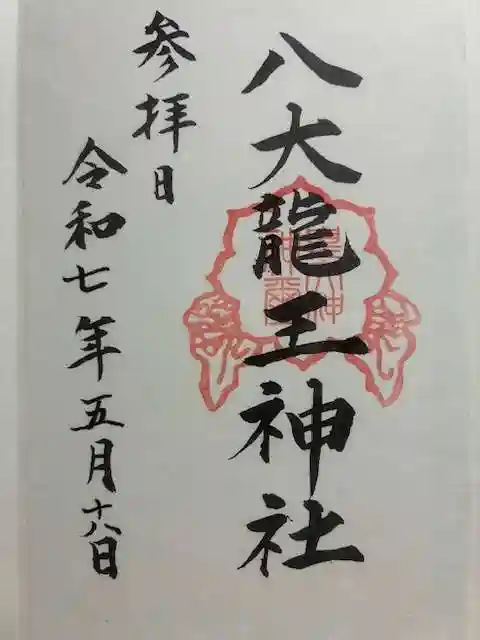 八大龍王神社
参拝日
令和七年五月十八日